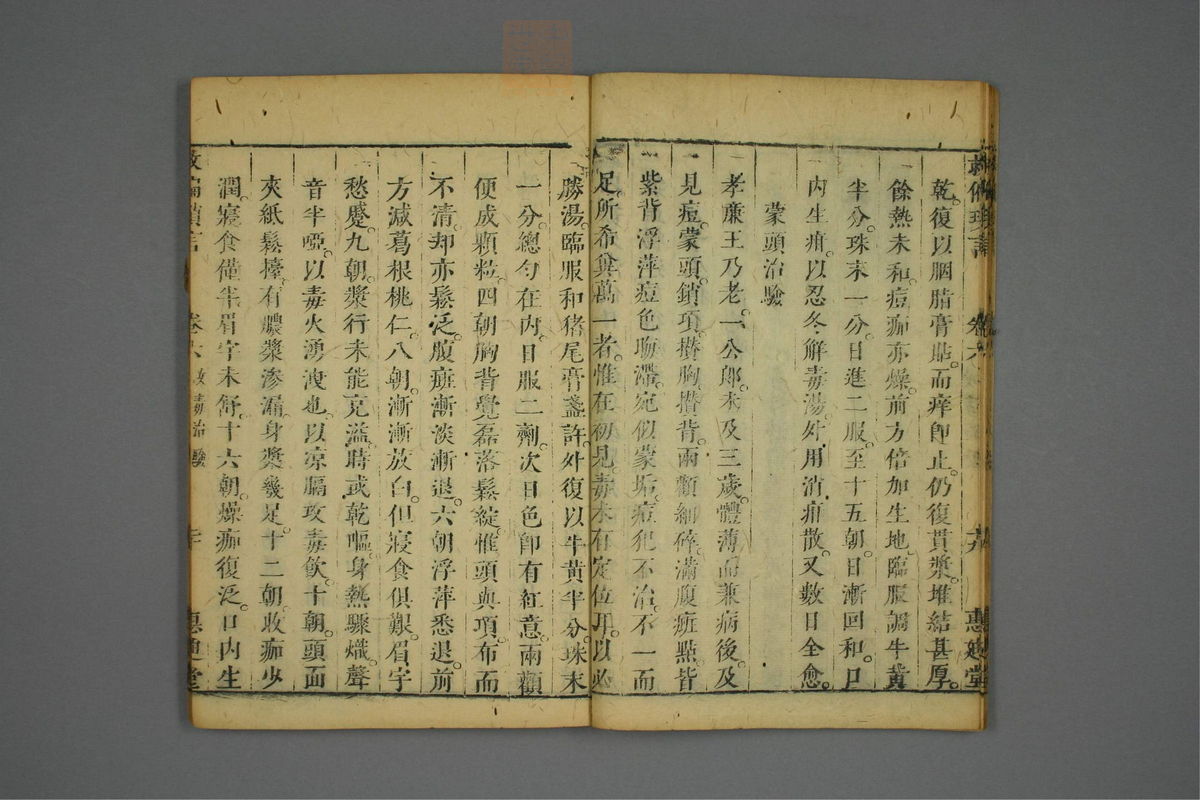 救偏瑣言 卷六 惠通堂
乾。復以胭脂膏貼。而痒即止。仍復貫漿。堆結甚厚。
餘熱未和。痘痂亦燥。前方倍加生地。臨服調牛黃
半分。珠末一分。日進二服。至十五朝。日漸回和。口
内生疳。以忍冬解毒湯。外用消疳散。又數日全愈。
蒙頭治驗
孝亷王乃老。一公郎。未及三歲。體薄而兼病後。及
見痘。蒙頭。銷項。攅胸。攅背。兩顴細碎。滿腹班點。皆
紫背浮萍。痘色晦滯。宛似蒙垢。痘犯不治。不一而
足。所希兾萬一者。惟在初見毒未有定位耳。以必
勝湯。臨服和猪尾膏盞許。外復以牛黃半分。珠末
一分。總勻在内。日服二劑。次日色即有紅意。兩顴
便成顆粒。四朝胸背覺磊落鬆綻。惟頭與項。布而
不清。却亦鬆泛。腹班漸淡漸退。六朝浮萍悉退。前
方減葛根桃仁。八朝漸漸放白。但寢食俱艱。眉宇
愁蹙。九朝。漿行未能克溢。時或乾嘔。身熱驟熾。聲
音半啞。以毒火湧洩也。以凉膈攻毒飲。十朝。頭面
夾紙鬆擡。有膿漿滲漏。身漿幾足。十二朝。收痂少
潤。寢食僅半。眉宇未舒。十六朝。燥痂復泛。口内生
救偏瑣言 卷六 治驗 二十 惠通堂